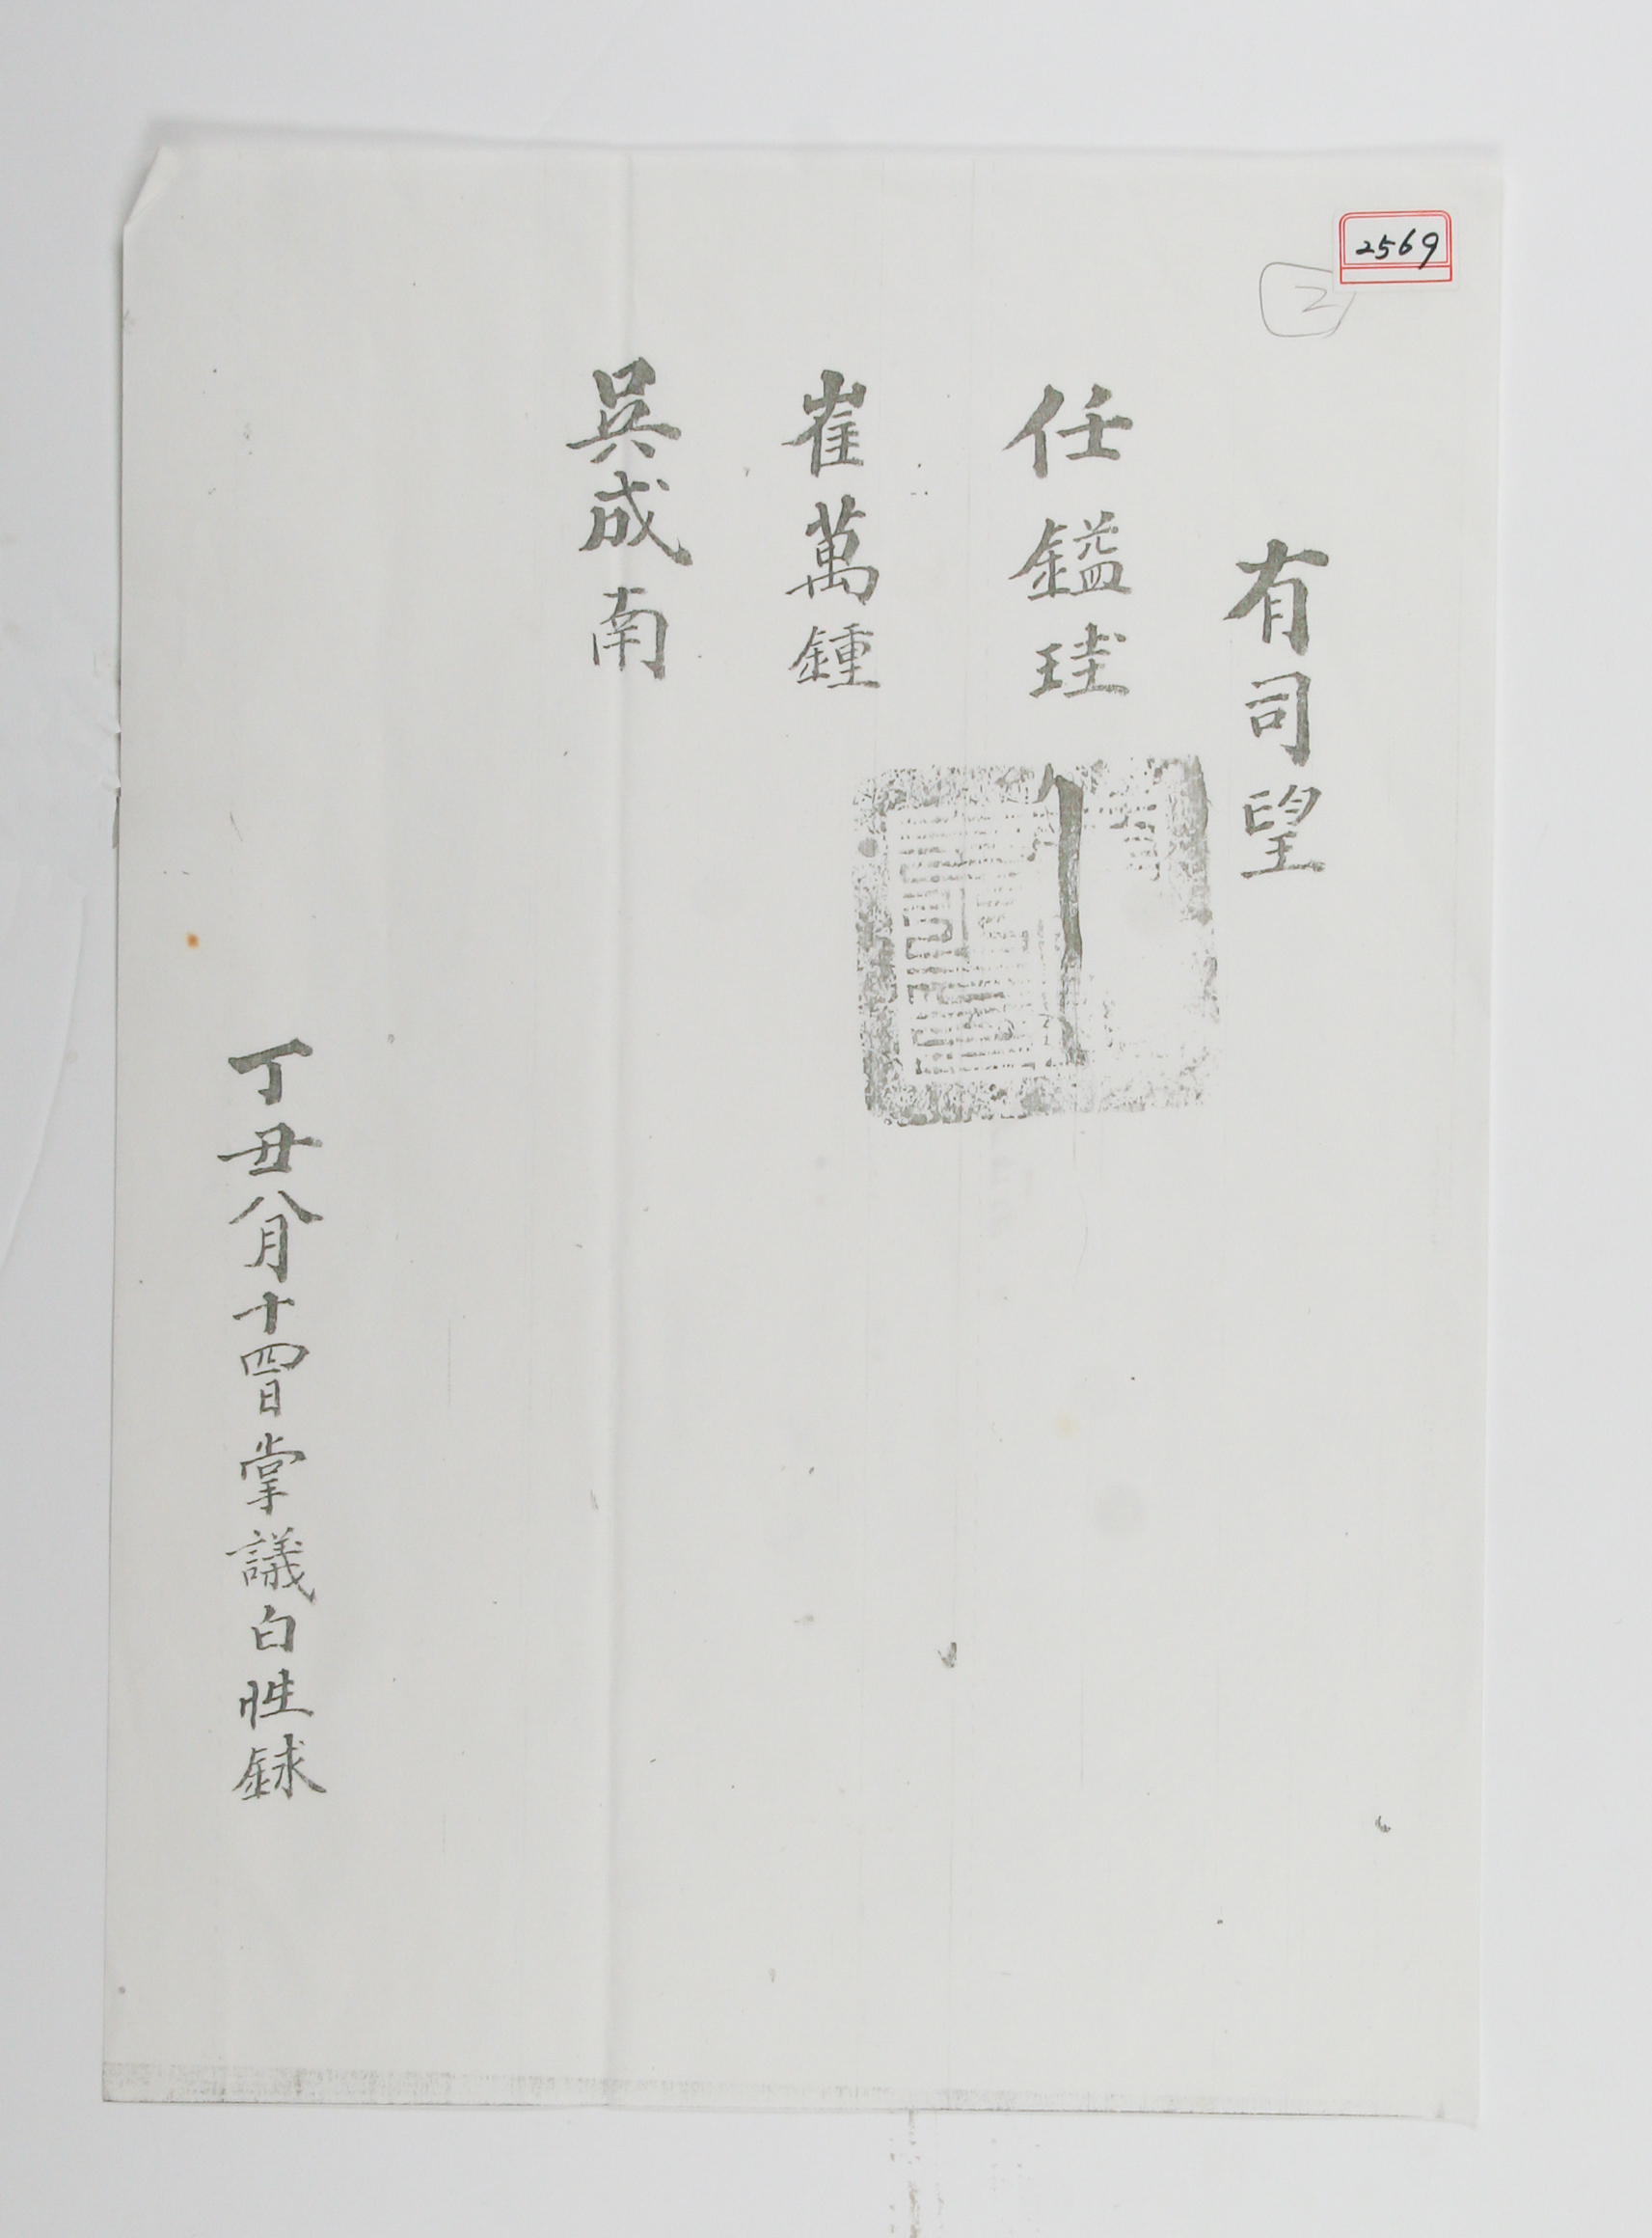 2569
2
有司望
任鎰珪
崔萬鍾
吳成南
丁丑八月十四日掌議白性銶